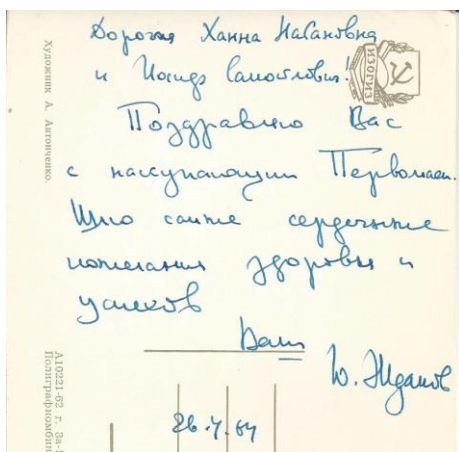 Дорогая Ханна Натановна
и Иосиф Самойлович!
Поздравляю Вас
с наступающим Первомаем.
Шлю самые сердечные
пожелания здоровья и
успехов
Ваш
Ю. Жданов
26.4.64
ИЗОГИЗ
Художник А. Антонченко.
А10221-62 г. За-
Полиграфкомбин